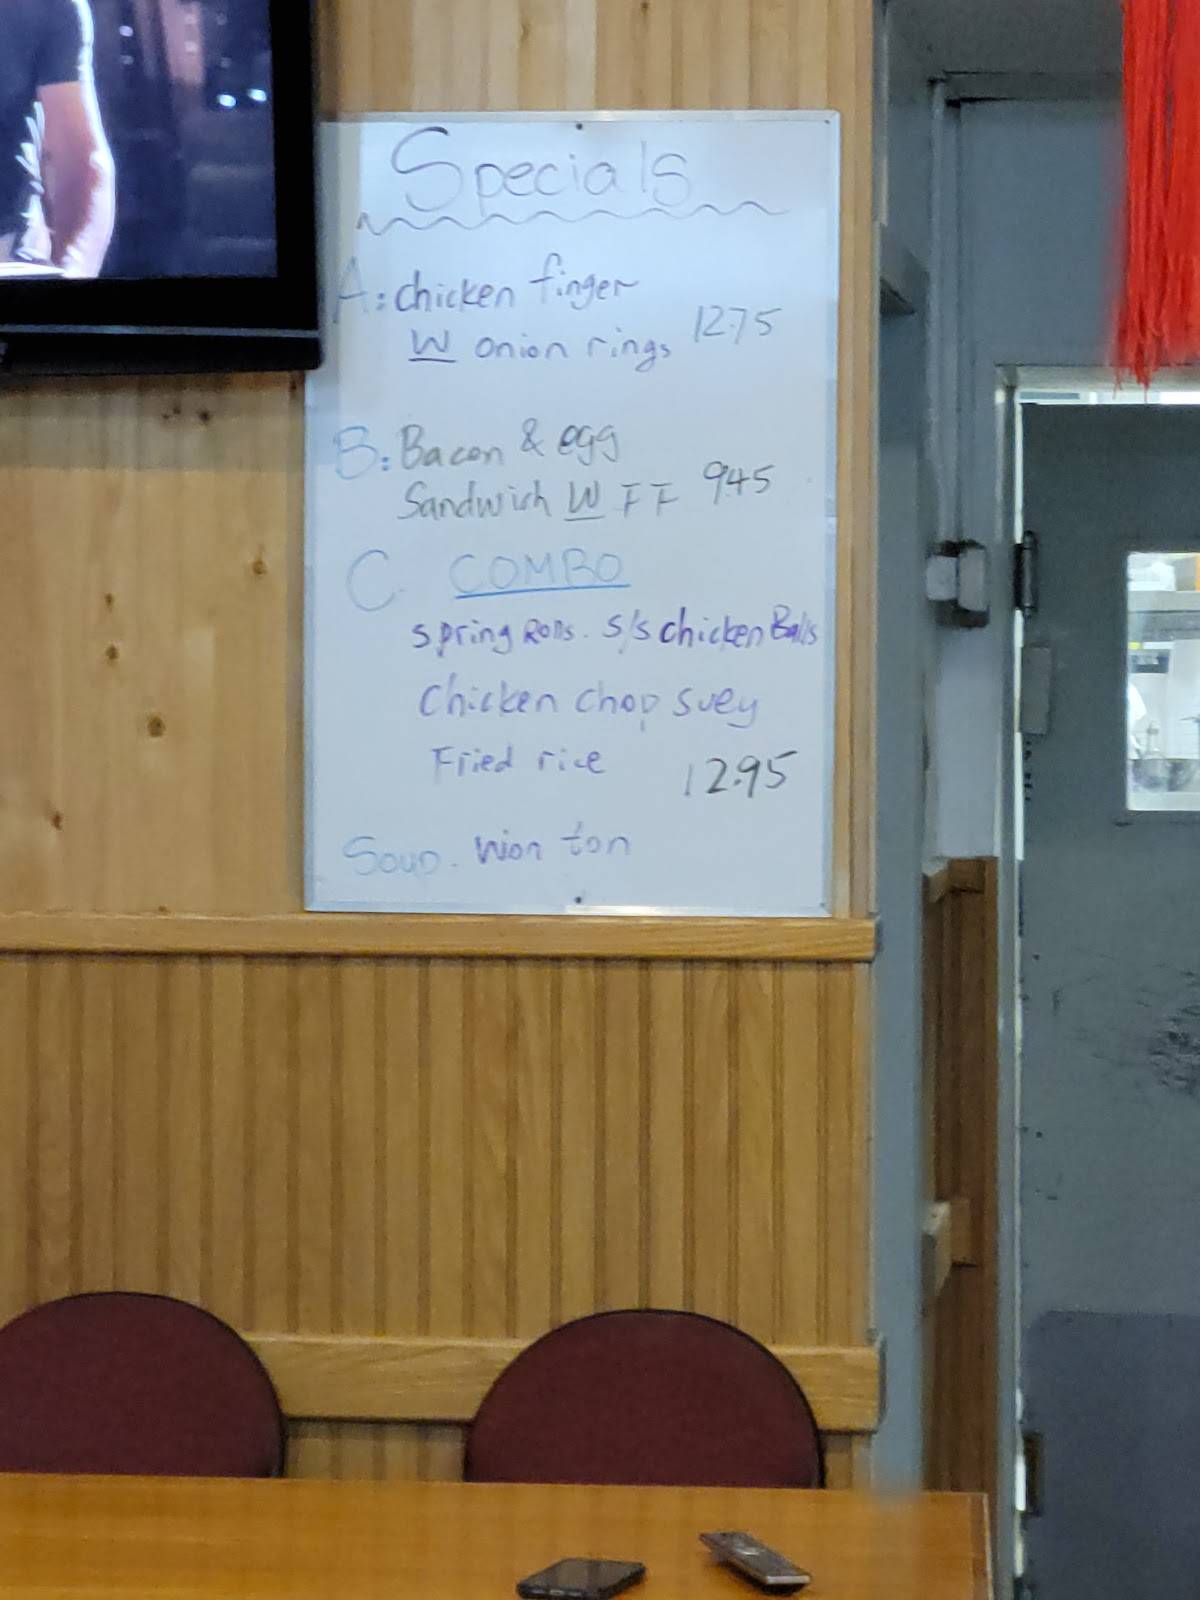 Specials
A: chicken finger
W onion rings 12.75
B: Bacon & egg
Sandwich W FF 9.45
C. COMBO
spring Rolls. S/S chicken Balls
Chicken chop suey
Fried rice 12.95
Soup. Won ton